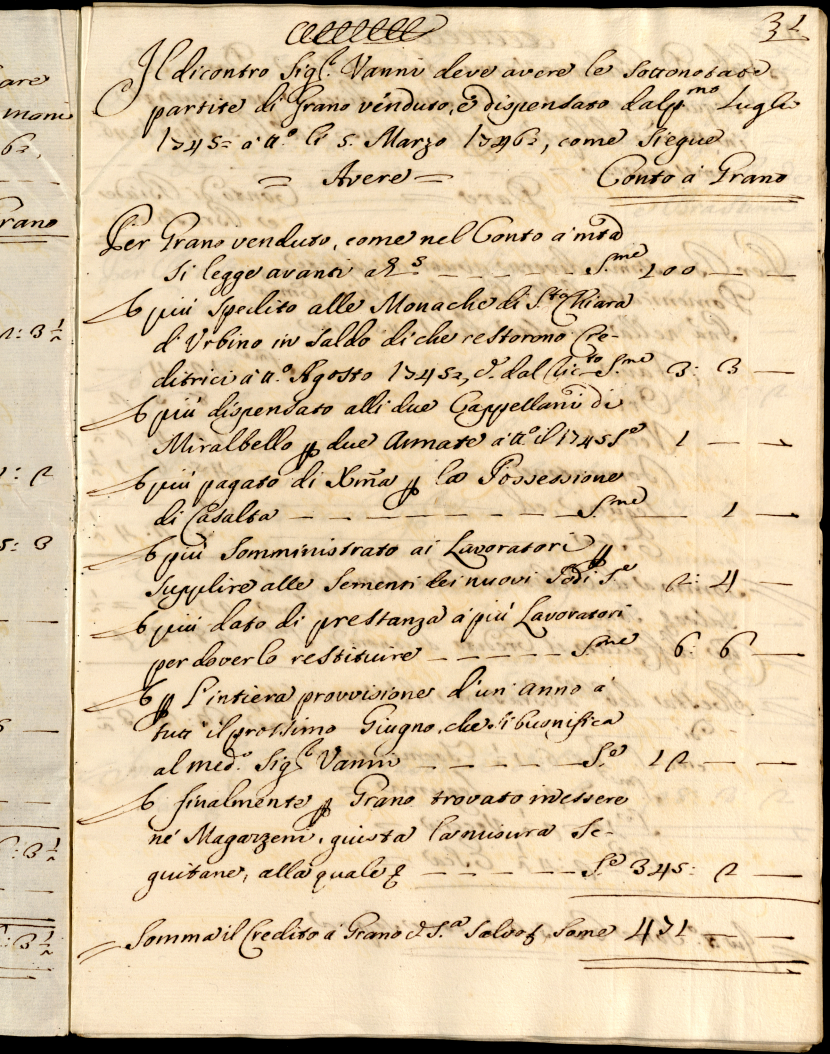 31
Il dicontro Sig.r Vanni deve avere le sottonotate
partite di Grano venduto, e dispensato dal p.mo Luglio
1745= à tt.o li 5. Marzo 1746=, come siegue
= Avere = Conto à Grano
Per Grano venduto, come nel Conto à mtà
si legge avanti à S.me 100 — —
E più spedito alle Monache di S.ta Chiara
d'Urbino in saldo di che restorono Cre-
ditrici à tt.o Agosto 1745=, S.me 3: 3 —
E più dispensato alli due Cappellani di
Miralbello p due Annate à tt.o il 1745 S.e 1 — —
E più pagato di Xma p la Possessione
di Casalta — — — S.me 1 —
E più somministrato ai Lavoratori p
supplire alle sementi dei nuovi Podi S.e 2: 4 —
E più dato di prestanza à più Lavoratori
per doverlo restituire — — — S.me 6: 6 —
E p l'intiera provvisione d'un'anno à
tutt'il prossimo Giugno, che si buonifica
al med.o Sig.r Vanni — — — S.e 12 — —
E finalmente p Grano trovato in essere
né Magazzeni, giusta la misura se-
guitane, alla quale — — — S.e 345: 2 —
= Somma il Credito à Grano Salvo Some 471 — —
are
moni
62,
rano
2: 3 1/2
1: 2
5: 3
: 3 1/2
: 3 1/2